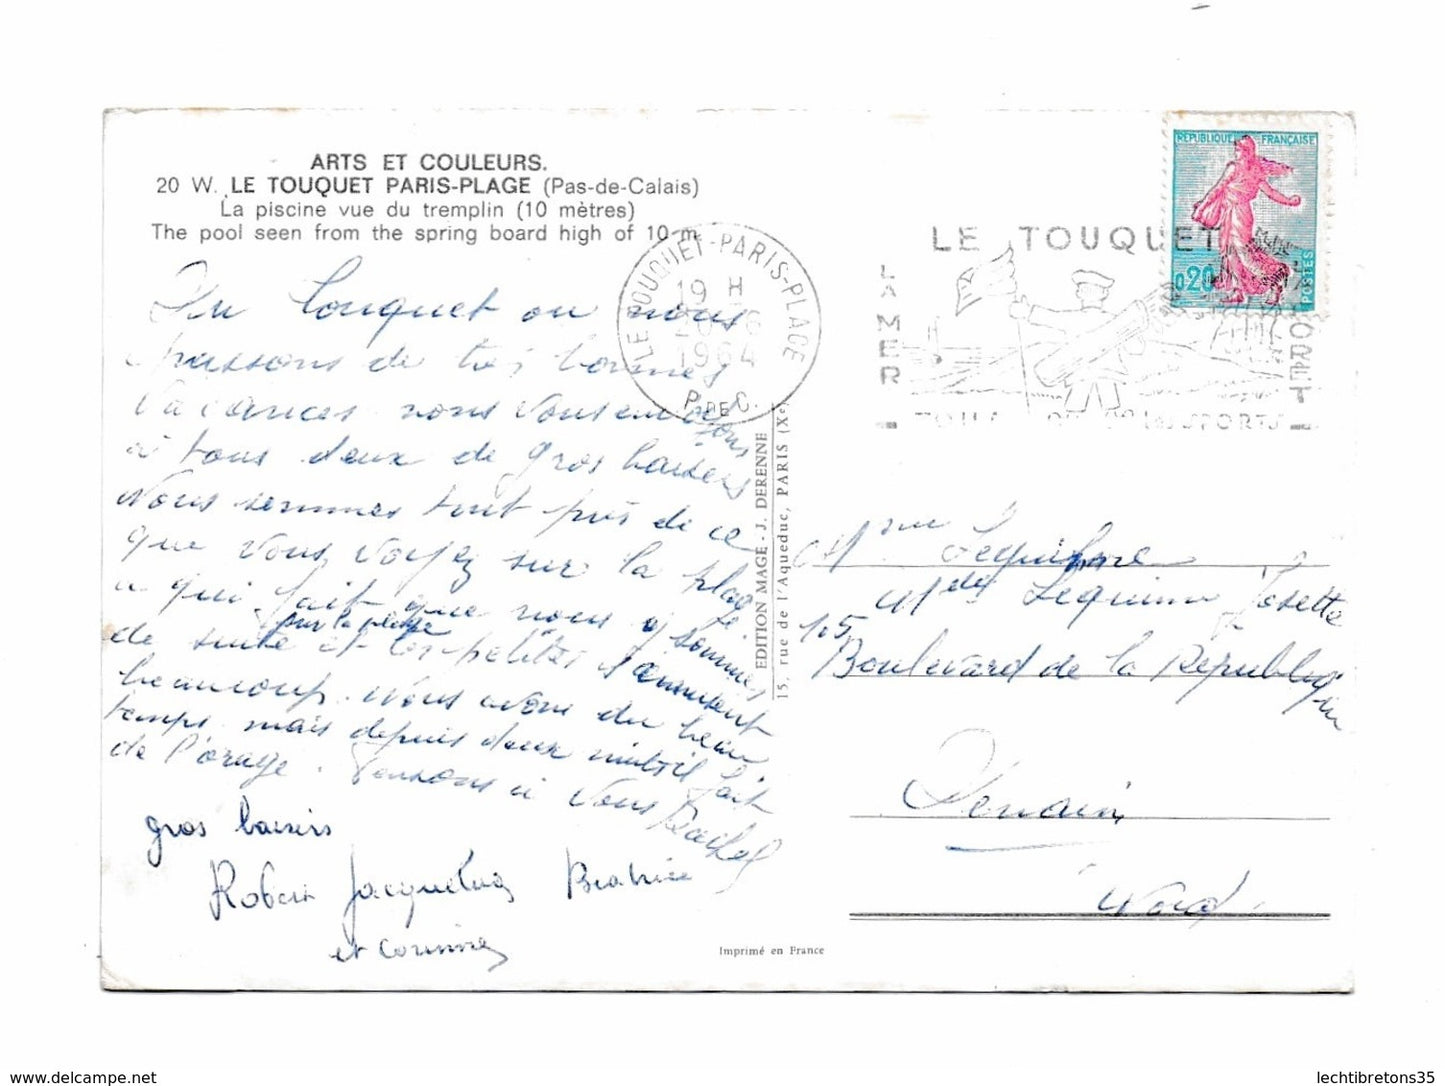 ARTS ET COULEURS.
20 W. LE TOUQUET PARIS-PLAGE (Pas-de-Calais)
La piscine vue du tremplin (10 mètres)
The pool seen from the spring board high of 10 m.
Du Touquet ou nous
passons de très bonnes
vacances nous vous envoyons
à tous deux de gros baisers
Nous sommes tout près de ce
que vous voyez sur la plage.
qui fait que nous y sommes
sur la plage
de suite et les petites s'amusent
beaucoup. nous avons du beau
temps. mais depuis deux nuits il fait
de l'orage. Pensons à vous Rachel
gros baisers
Robert Jacqueline Beatrice
et corinne
LE TOUQUET-PARIS-PLAGE
19 H
20 -6
1964
P. DE C.
LE TOUQUET
LA MER
FORET
SPORTS
REPUBLIQUE FRANÇAISE
0,20
POSTES
EDITION MAGE - J. DERENNE
15, rue de l'Aqueduc, PARIS (Xe)
Mme
Josette
105
Boulevard de la République
Denain
Nord
Imprimé en France
delcampe.net
lechtibretons35